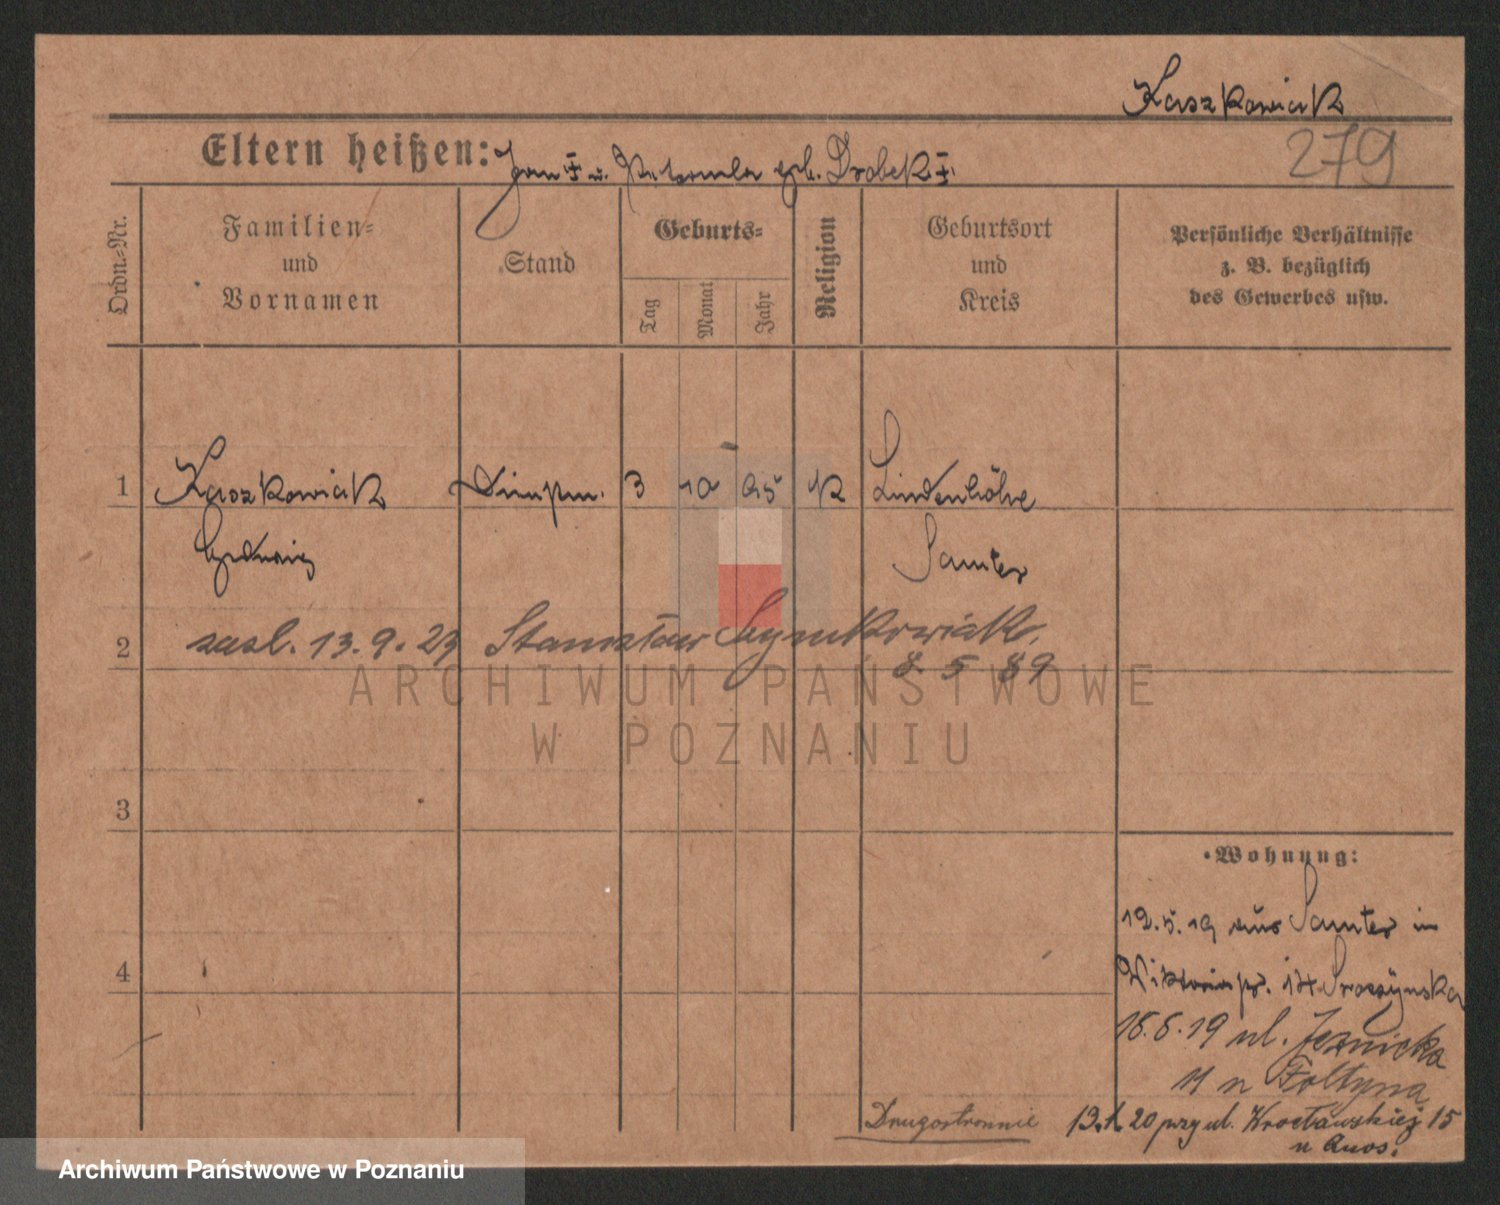 Kaszkowiak
279
Eltern heißen: Jan † u. geb. Drobek †
Ordn.=Nr.
Familien=
und
Vornamen
Stand
Geburts=
Tag
Monat
Jahr
Religion
Geburtsort
und
Kreis
Persönliche Verhältnisse
z. B. bezüglich
des Gewerbes usw.
1 Kaszkowiak 3 10 95 K Lindenhöhe
Hedwig Samter
2 zasl. 13.9.23 Stanisław Szymkowiak
8 5 89
ARCHIWUM PAŃSTWOWE
W POZNANIU
3
Wohnung:
12.5.19 aus Samter in
4
18.6.19 ul. Łąznicka
11 n Foltyna
Drugostronnie 13.1.20 przy ul. Wrocławskiej 15
Archiwum Państwowe w Poznaniu